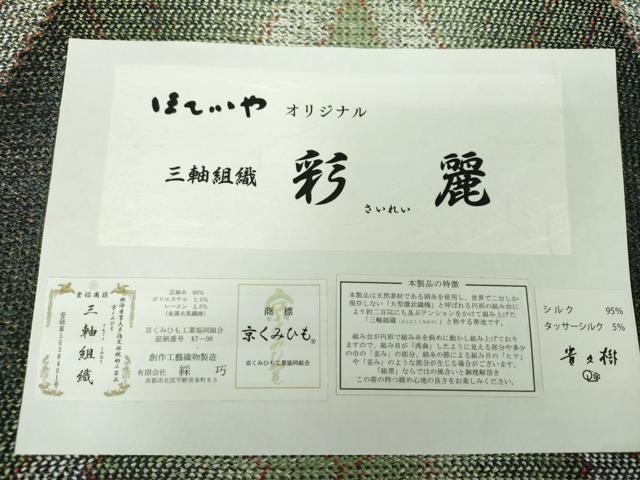 ほていや オリジナル
三軸組織 彩麗
さいれい
登録商標
三軸組織
登録第5638401号
正絹糸 90%
ポリエステル 2.5%
レーヨン 2.5%
(金属糸風繊維)
京くみひも工業協同組合
証紙番号 KT-08
創作工藝織物製造
有限会社 綵巧
京都市北区平野宮本町85
商標
京くみひも®
京くみひも工業協同組合
本製品の特徴
本製品は天然素材である絹糸を使用し、世界で二台しか
現存しない「大型環状織機」と呼ばれる円形の組み台に
より約二百玩にも及ぶテンションをかけて組み上げた
「三軸組織(さんじくくみおり)」と称する帯地です。
組み台が円形で組み糸を斜めに動かし組み上げており
ますので、組み目が「湾曲」したように見える部分や多少
の巾の「歪み」の部分、絹糸の節による組み目の「ヒケ」
や「歪み」のような部分が生じる場合がございます。
「組帯」ならではの風合いと御理解頂き
この帯の持つ締め心地の良さをお楽しみください。
シルク 95%
タッサーシルク 5%
貴久樹